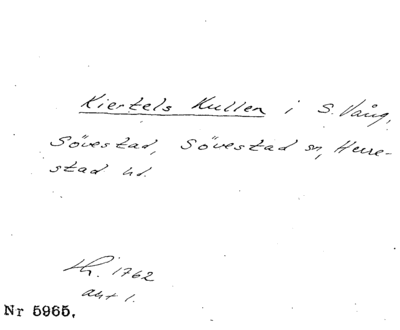 Kiertels Kullen i S. Vång,
Sövestad, Sövestad sn, Herre-
stad hd.
1762
akt 1.
Nr 5965.